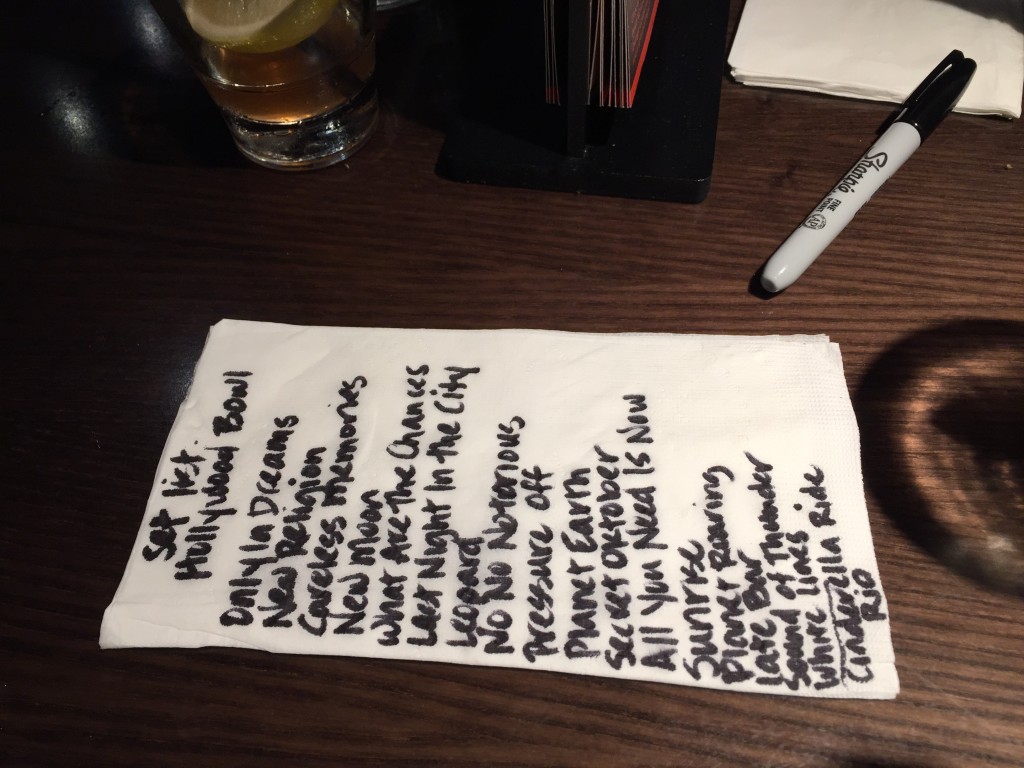 Set list
Hollywood Bowl
Only In Dreams
New Religion
Careless Memories
New Moon
What Are The Chances
Last Night In the City
Leopard
No No Notorious
Pressure Off
Planet Earth
Secret Oktober
All You Need Is Now
Sunrise
Planet Roaring
Late Bar
Sound of Thounder
White Lines
Cinderella Ride
Rio
Sharpie
FINE
POINT
AP